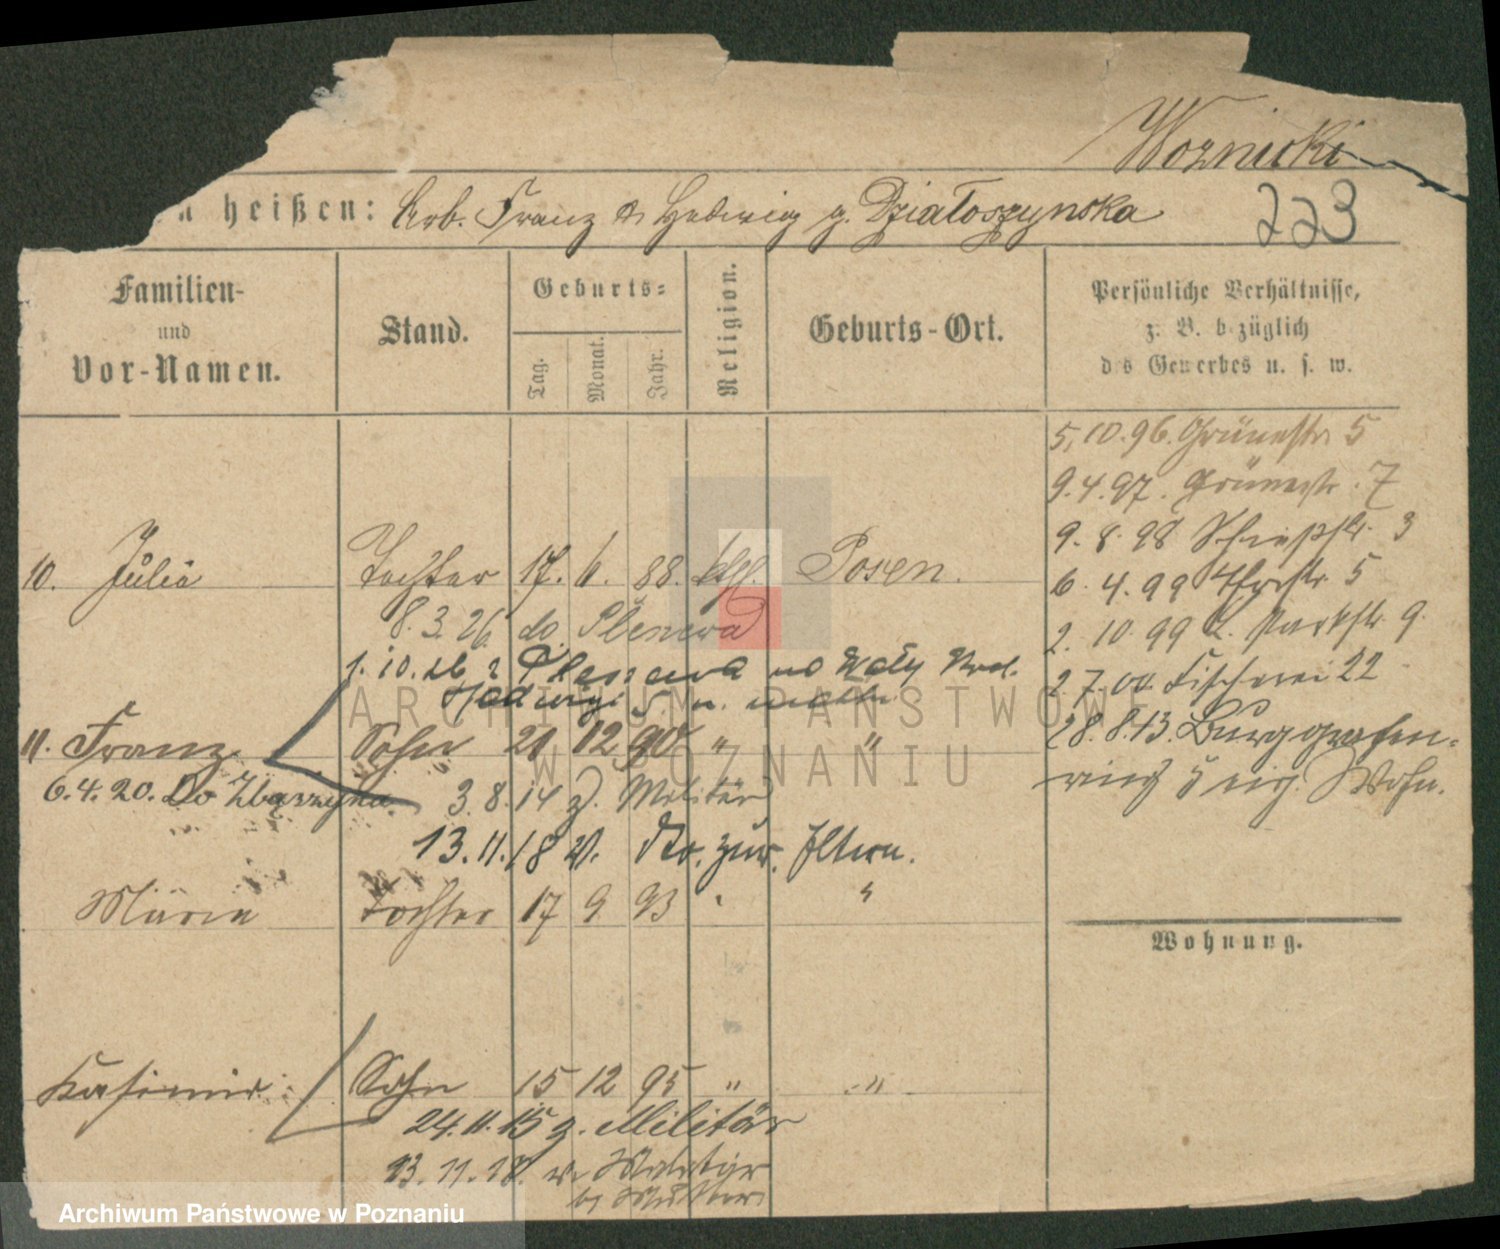 Woznicki
n heißen: Arb. Franz & Hedwig g. Działoszynska
223
Familien-
und
Vor-Namen.
Stand.
Geburts=
Tag.
Monat.
Jahr.
Religion.
Geburts-Ort.
Persönliche Verhältnisse,
z. B. bezüglich
des Gewerbes u. s. w.
5.10.96. Grünestr. 5
9.4.97. Grünestr. 7
9.8.98 Schießstr. 3
6.4.99 5
2.10.99 Parkstr. 9.
2.7.00. Fischerei 22
28.8.13. Burggrafen-
ring 5 eig. Wohn.
10. Julia Tochter 17. 6. 88. kth. Posen.
8.3.26 do Plenera
1.10.26 z
Hedwigi 5 m.
11. Franz Sohn 21 12 90 " "
6.4.20. Do Zbąszynia 3.8.14 z. Militär
13.11.18 v. zur. Eltern.
Maria Tochter 17 9 93 " "
Wohnung.
Kasimir Sohn 15 12 95 " "
24.11.15 z. Militär
13.11.18. v. Militär
b. Mutter
ARCHIWUM PAŃSTWOWE
W POZNANIU
Archiwum Państwowe w Poznaniu